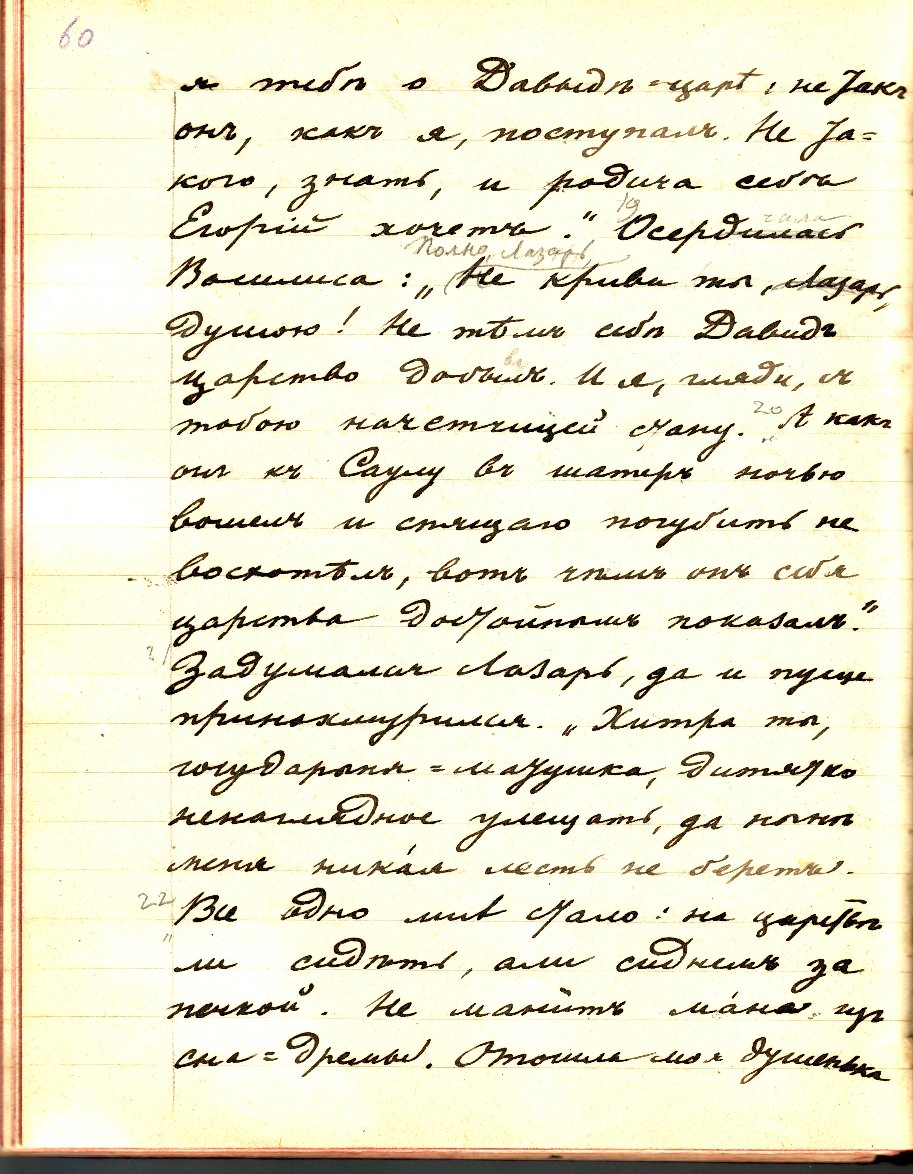 60
я тебѣ о Давыдѣ=царѣ: не такъ
онъ, какъ я, поступалъ. Не та=
кого, знать, и родича себѣ
Егорій хочетъ." 19 Осердилась чала
Полно, Лазарь,
Василиса: „Не криви ты, Лазарь,
душою! Не тѣмъ себѣ Давидъ
царство добылъ. И я, гляди, съ
тобою начетчицей стану. 20 „А какъ
онъ къ Саулу въ шатеръ ночью
вошелъ и спящаго погубить не
восхотѣлъ, вотъ чѣмъ онъ себя
царства достойнымъ показалъ."
21 Задумался Лазарь, да и пуще
принахмурился. „Хитра ты,
государыня=матушка, дитятко
ненаглядное улещать, да нынѣ
меня ника́я лесть не беретъ.
22 Все одно мнѣ стало: на царствѣ
ли сидѣть, али сиднемъ за
печкой. Не манитъ ма́на изъ
сна=дремы. Отошла моя душенька